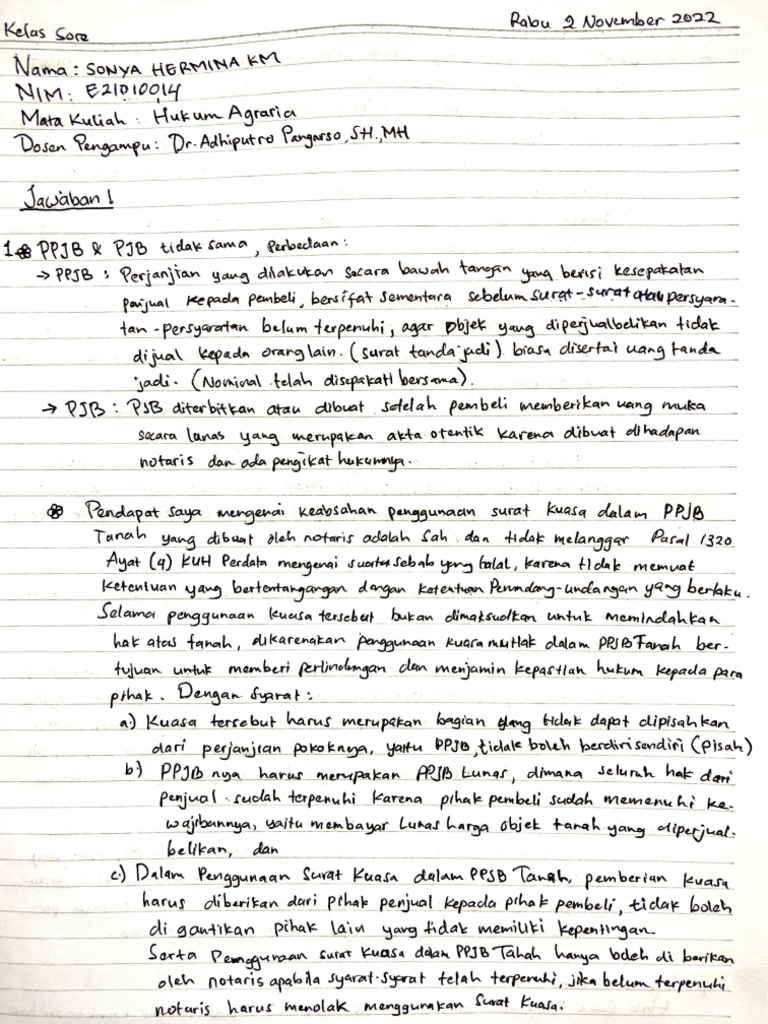 Kelas Sore
Rabu 2 November 2022
Nama : SONYA HERMINA KM
NIM : E21010014
Mata Kuliah : Hukum Agraria
Dosen Pengampu : Dr. Adhiputro Pangarso, SH., MH
Jawaban !
1. PPJB & PJB tidak sama, Perbedaan :
→ PPJB : Perjanjian yang dilakukan secara bawah tangan yang berisi kesepakatan
penjual kepada pembeli, bersifat sementara sebelum surat-surat atau persyara-
tan-persyaratan belum terpenuhi, agar objek yang diperjualbelikan tidak
dijual kepada orang lain. (surat tanda jadi) biasa disertai uang tanda
jadi. (Nominal telah disepakati bersama).
→ PJB : PJB diterbitkan atau dibuat setelah pembeli memberikan uang muka
secara lunas yang merupakan akta otentik karena dibuat dihadapan
notaris dan ada pengikat hukumnya.
Pendapat saya mengenai keabsahan penggunaan surat kuasa dalam PPJB
Tanah yang dibuat oleh notaris adalah sah dan tidak melanggar Pasal 1320
Ayat (4) KUH Perdata mengenai suatu sebab yang halal, karena tidak memuat
Ketentuan yang bertentangangan dengan ketentuan Perundang-undangan yang berlaku.
Selama penggunaan kuasa tersebut bukan dimaksudkan untuk memindahkan
hak atas tanah, dikarenakan penggunaan kuasa mutlak dalam PPJB Tanah ber-
tujuan untuk memberi perlindungan dan menjamin kepastian hukum kepada para
pihak. Dengan syarat :
a.) Kuasa tersebut harus merupakan bagian yang tidak dapat dipisahkan
dari perjanjian pokoknya, yaitu PPJB, tidak boleh berdiri sendiri (pisah)
b.) PPJB nya harus merupakan PPJB Lunas, dimana seluruh hak dari
penjual sudah terpenuhi karena pihak pembeli sudah memenuhi ke-
wajibannya, yaitu membayar lunas harga objek tanah yang diperjual-
belikan, dan
c.) Dalam Penggunaan Surat Kuasa dalam PPJB Tanah, pemberian kuasa
harus diberikan dari pihak penjual kepada pihak pembeli, tidak boleh
di gantikan pihak lain yang tidak memiliki kepentingan.
Serta Penggunaan surat kuasa dalam PPJB Tanah hanya boleh di berikan
oleh notaris apabila syarat-syarat telah terpenuhi, jika belum terpenuhi
notaris harus menolak menggunakan surat kuasa.